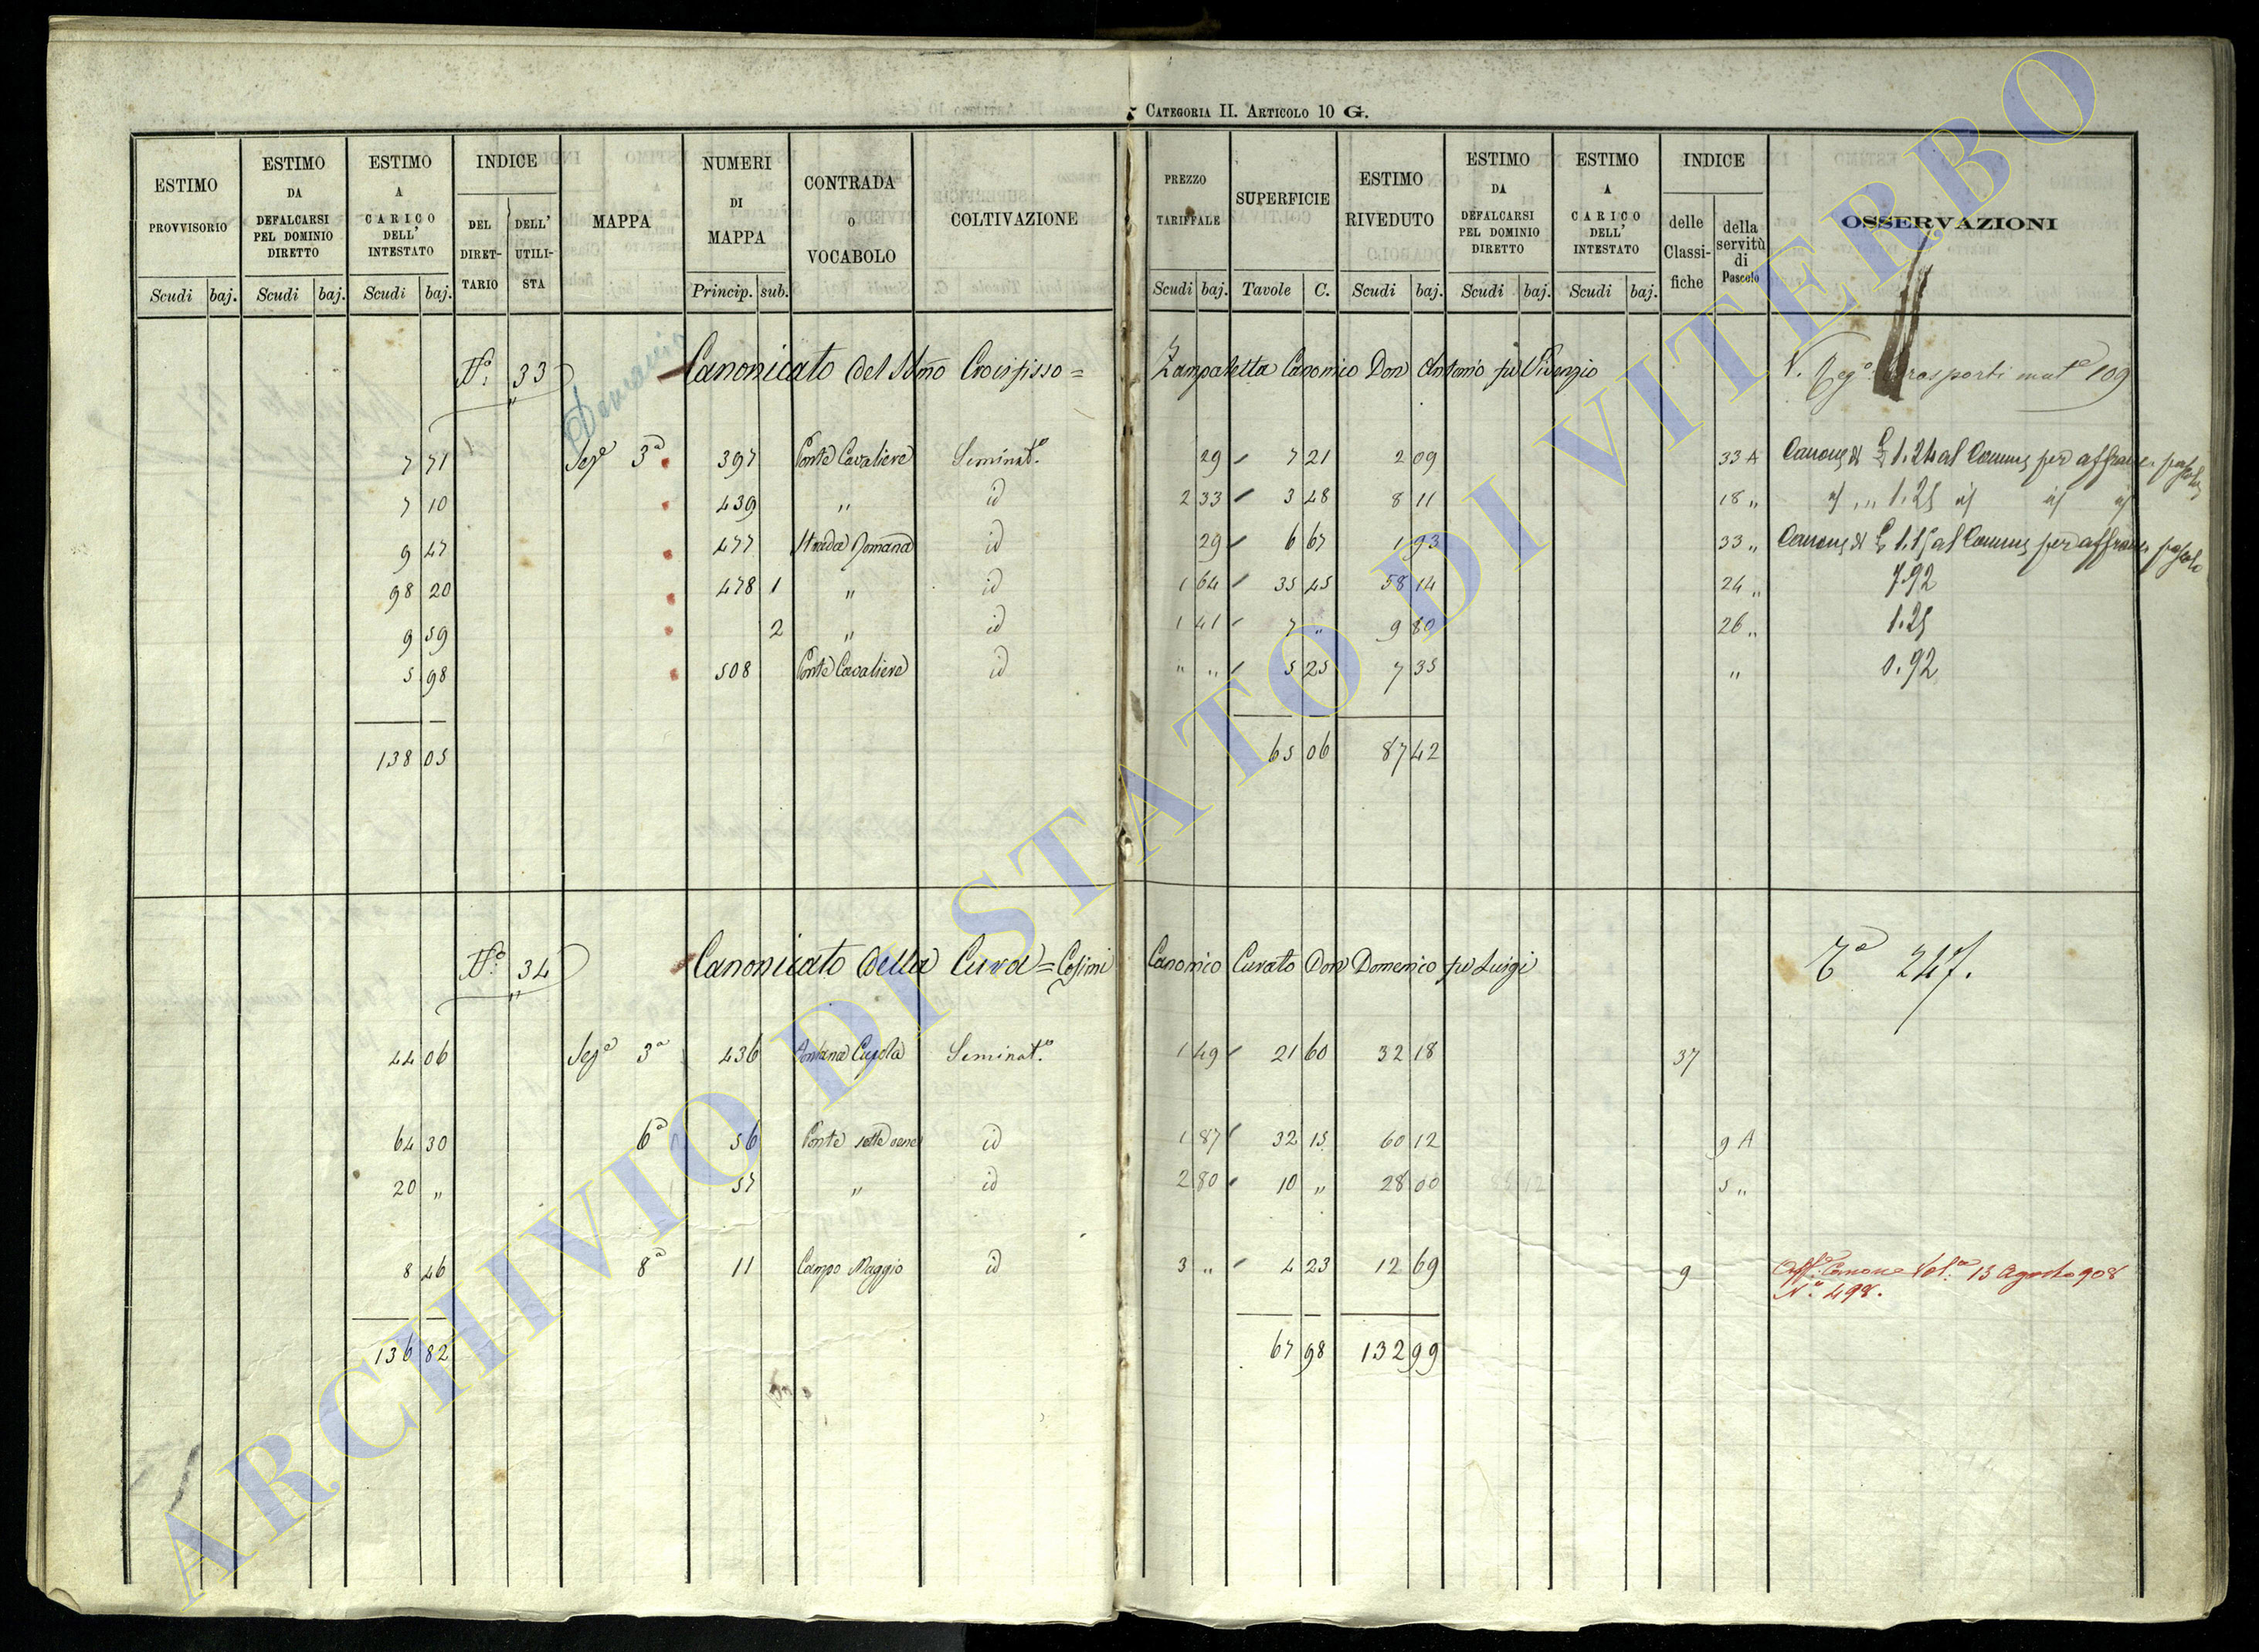 CATEGORIA II. ARTICOLO 10 G.
ESTIMO PROVVISORIO Scudi baj.
ESTIMO DA DEFALCARSI PEL DOMINIO DIRETTO Scudi baj.
ESTIMO A CARICO DELL' INTESTATO Scudi baj.
INDICE DEL DIRET-TARIO DELL' UTILI-STA
MAPPA
NUMERI DI MAPPA Princip. sub.
CONTRADA o VOCABOLO
COLTIVAZIONE
PREZZO TARIFFALE Scudi baj.
SUPERFICIE Tavole C.
ESTIMO RIVEDUTO Scudi baj.
ESTIMO DA DEFALCARSI PEL DOMINIO DIRETTO Scudi baj.
ESTIMO A CARICO DELL' INTESTATO Scudi baj.
INDICE delle Classi-fiche della servitù di Pascolo
OSSERVAZIONI
Demanio
N.° 33 Canonicato del SSmo Crocifisso = Zampaletta Canonico Don Antonio fu Vivenzio V. Reg° Trasporti mat° 109
7 71 Sez.e 3a 397 Ponte Cavaliere Seminat.o 29 7 21 2 09 33 A Canone di £ 1.24 al Comune per affranc. pascolo
7 10 439 " id 2 33 3 48 8 11 18 " id " 1.25 id id id
9 47 477 Strada Romana id 29 6 67 1 93 33 " Canone di £ 1.15 al Comune per affranc. pascolo
98 20 478 1 " id 1 64 35 45 58 14 24 " 7.92
9 59 2 " id 1 41 7 " 9 80 26 " 1.25
5 98 508 Ponte Cavaliere id " " 5 25 7 35 " 0.92
138 05 65 06 87 42
N.° 34 Canonicato della Cura = Cosimi Canonico Curato Don Domenico fu Luigi 247.
44 06 Sez.e 3a 436 Fontana Cupola Seminat.o 1 49 21 60 32 18 37
64 30 6a 56 Ponte sette vene id 1 87 32 15 60 12 9 A
20 " 57 " id 2 80 10 " 28 00 5 "
8 46 8a 11 Campo Maggio id 3 " 4 23 12 69 9 Aff.e Canone Vol.a 13 Agosto 908
N.° 498.
136 82 67 98 132 99
ARCHIVIO DI STATO DI VITERBO